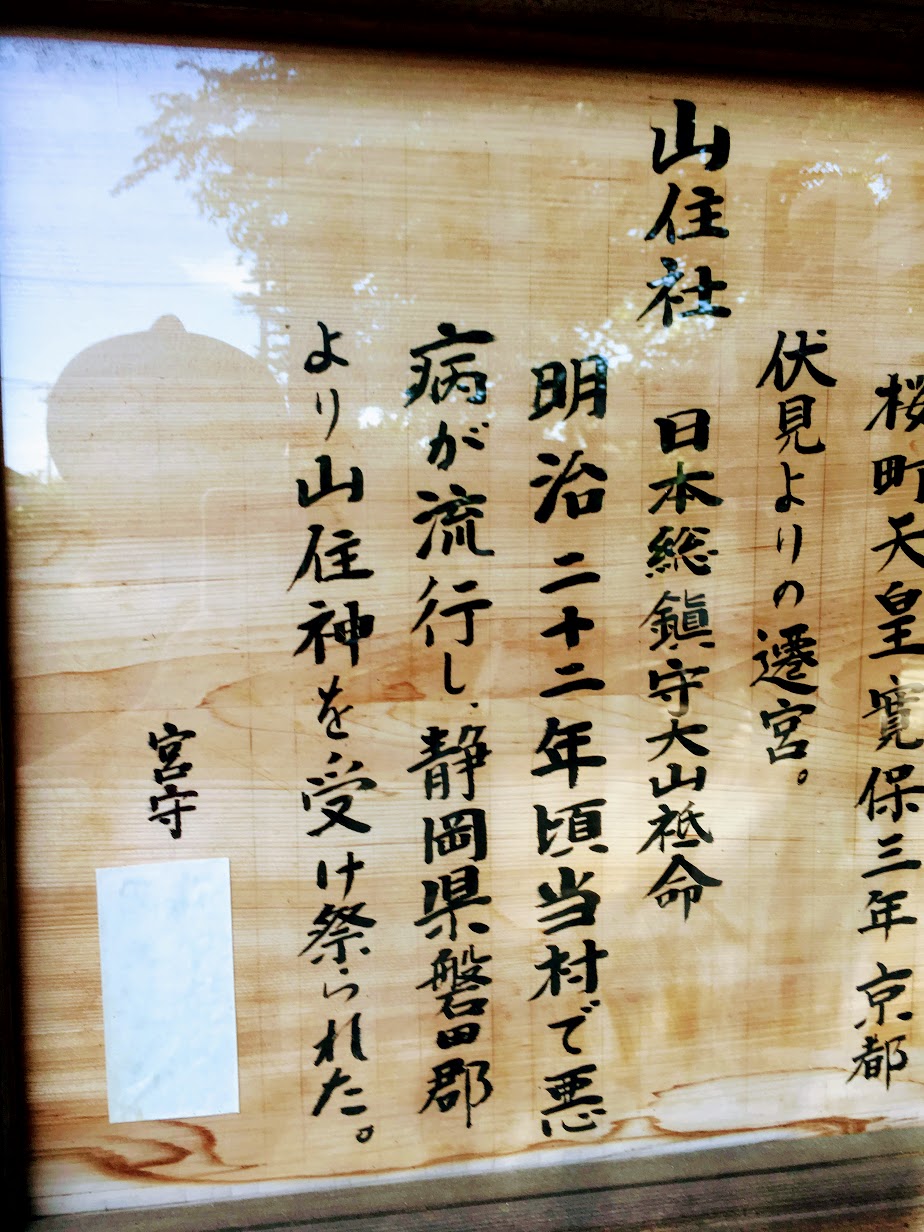 桜町天皇寛保三年 京都
伏見よりの遷宮。
山住社 日本総鎮守大山祗命
明治二十二年頃当村で悪
病が流行し、静岡県磐田郡
より山住神を受け祭られた。
宮守